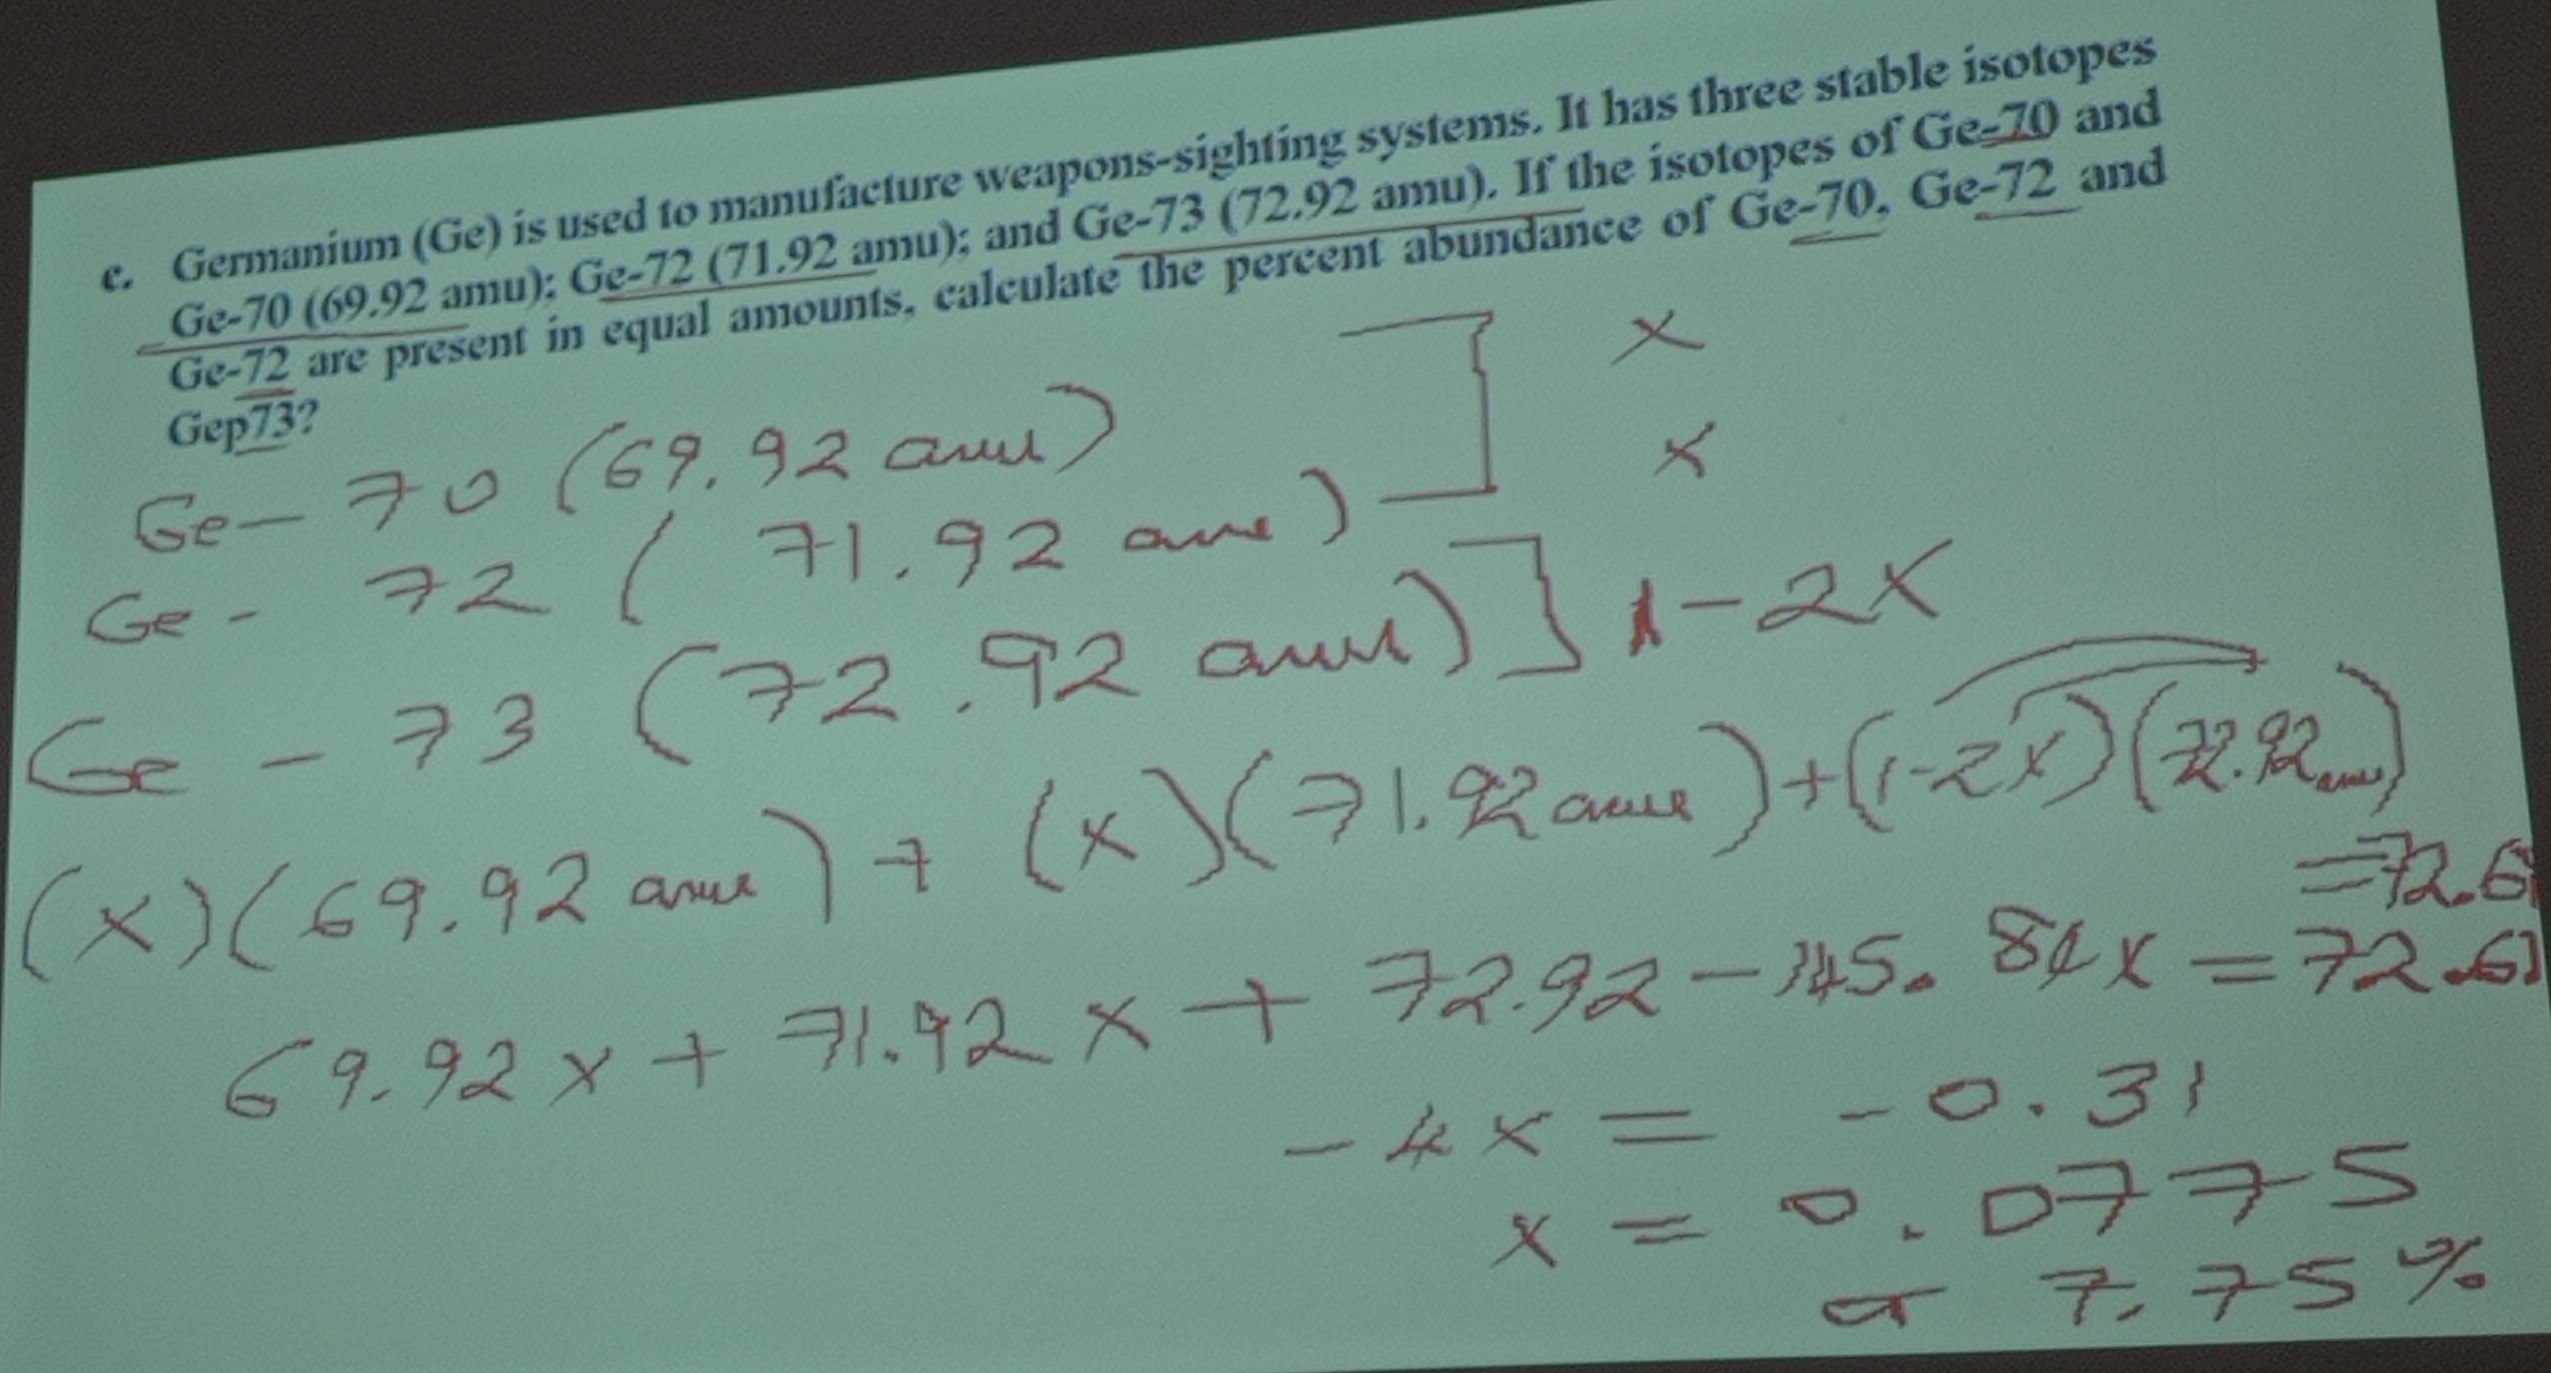 c. Germanium (Ge) is used to manufacture weapons-sighting systems. It has three stable isotopes
Ge-70 (69.92 amu); Ge-72 (71.92 amu); and Ge-73 (72.92 amu). If the isotopes of Ge-70 and
Ge-72 are present in equal amounts, calculate the percent abundance of Ge-70, Ge-72 and
Gep73?
Ge - 70 (69.92 amu) ] x
Ge - 72 (71.92 amu) x
Ge - 73 (72.92 amu) ] 1 - 2x
(x)(69.92 amu) + (x)(71.92 amu) + (1-2x)(72.92 amu)
= 72.61
69.92x + 71.92x + 72.92 - 145.84x = 72.61
- 4x = - 0.31
x = 0.0775
or 7.75%